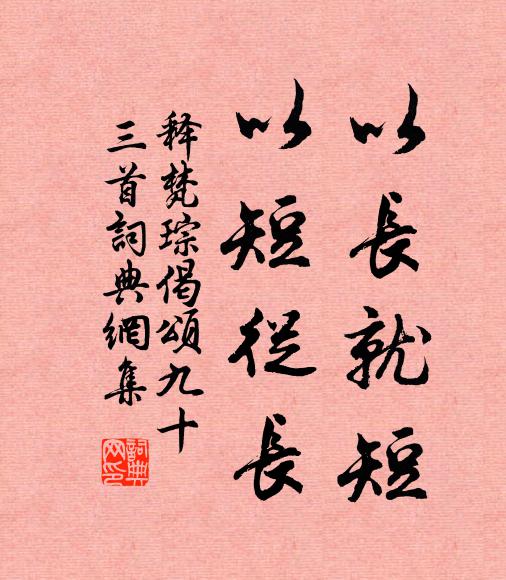 以長就短
以短從長
释梵琮偈頌九十
三首詞典網集
詞典
网印